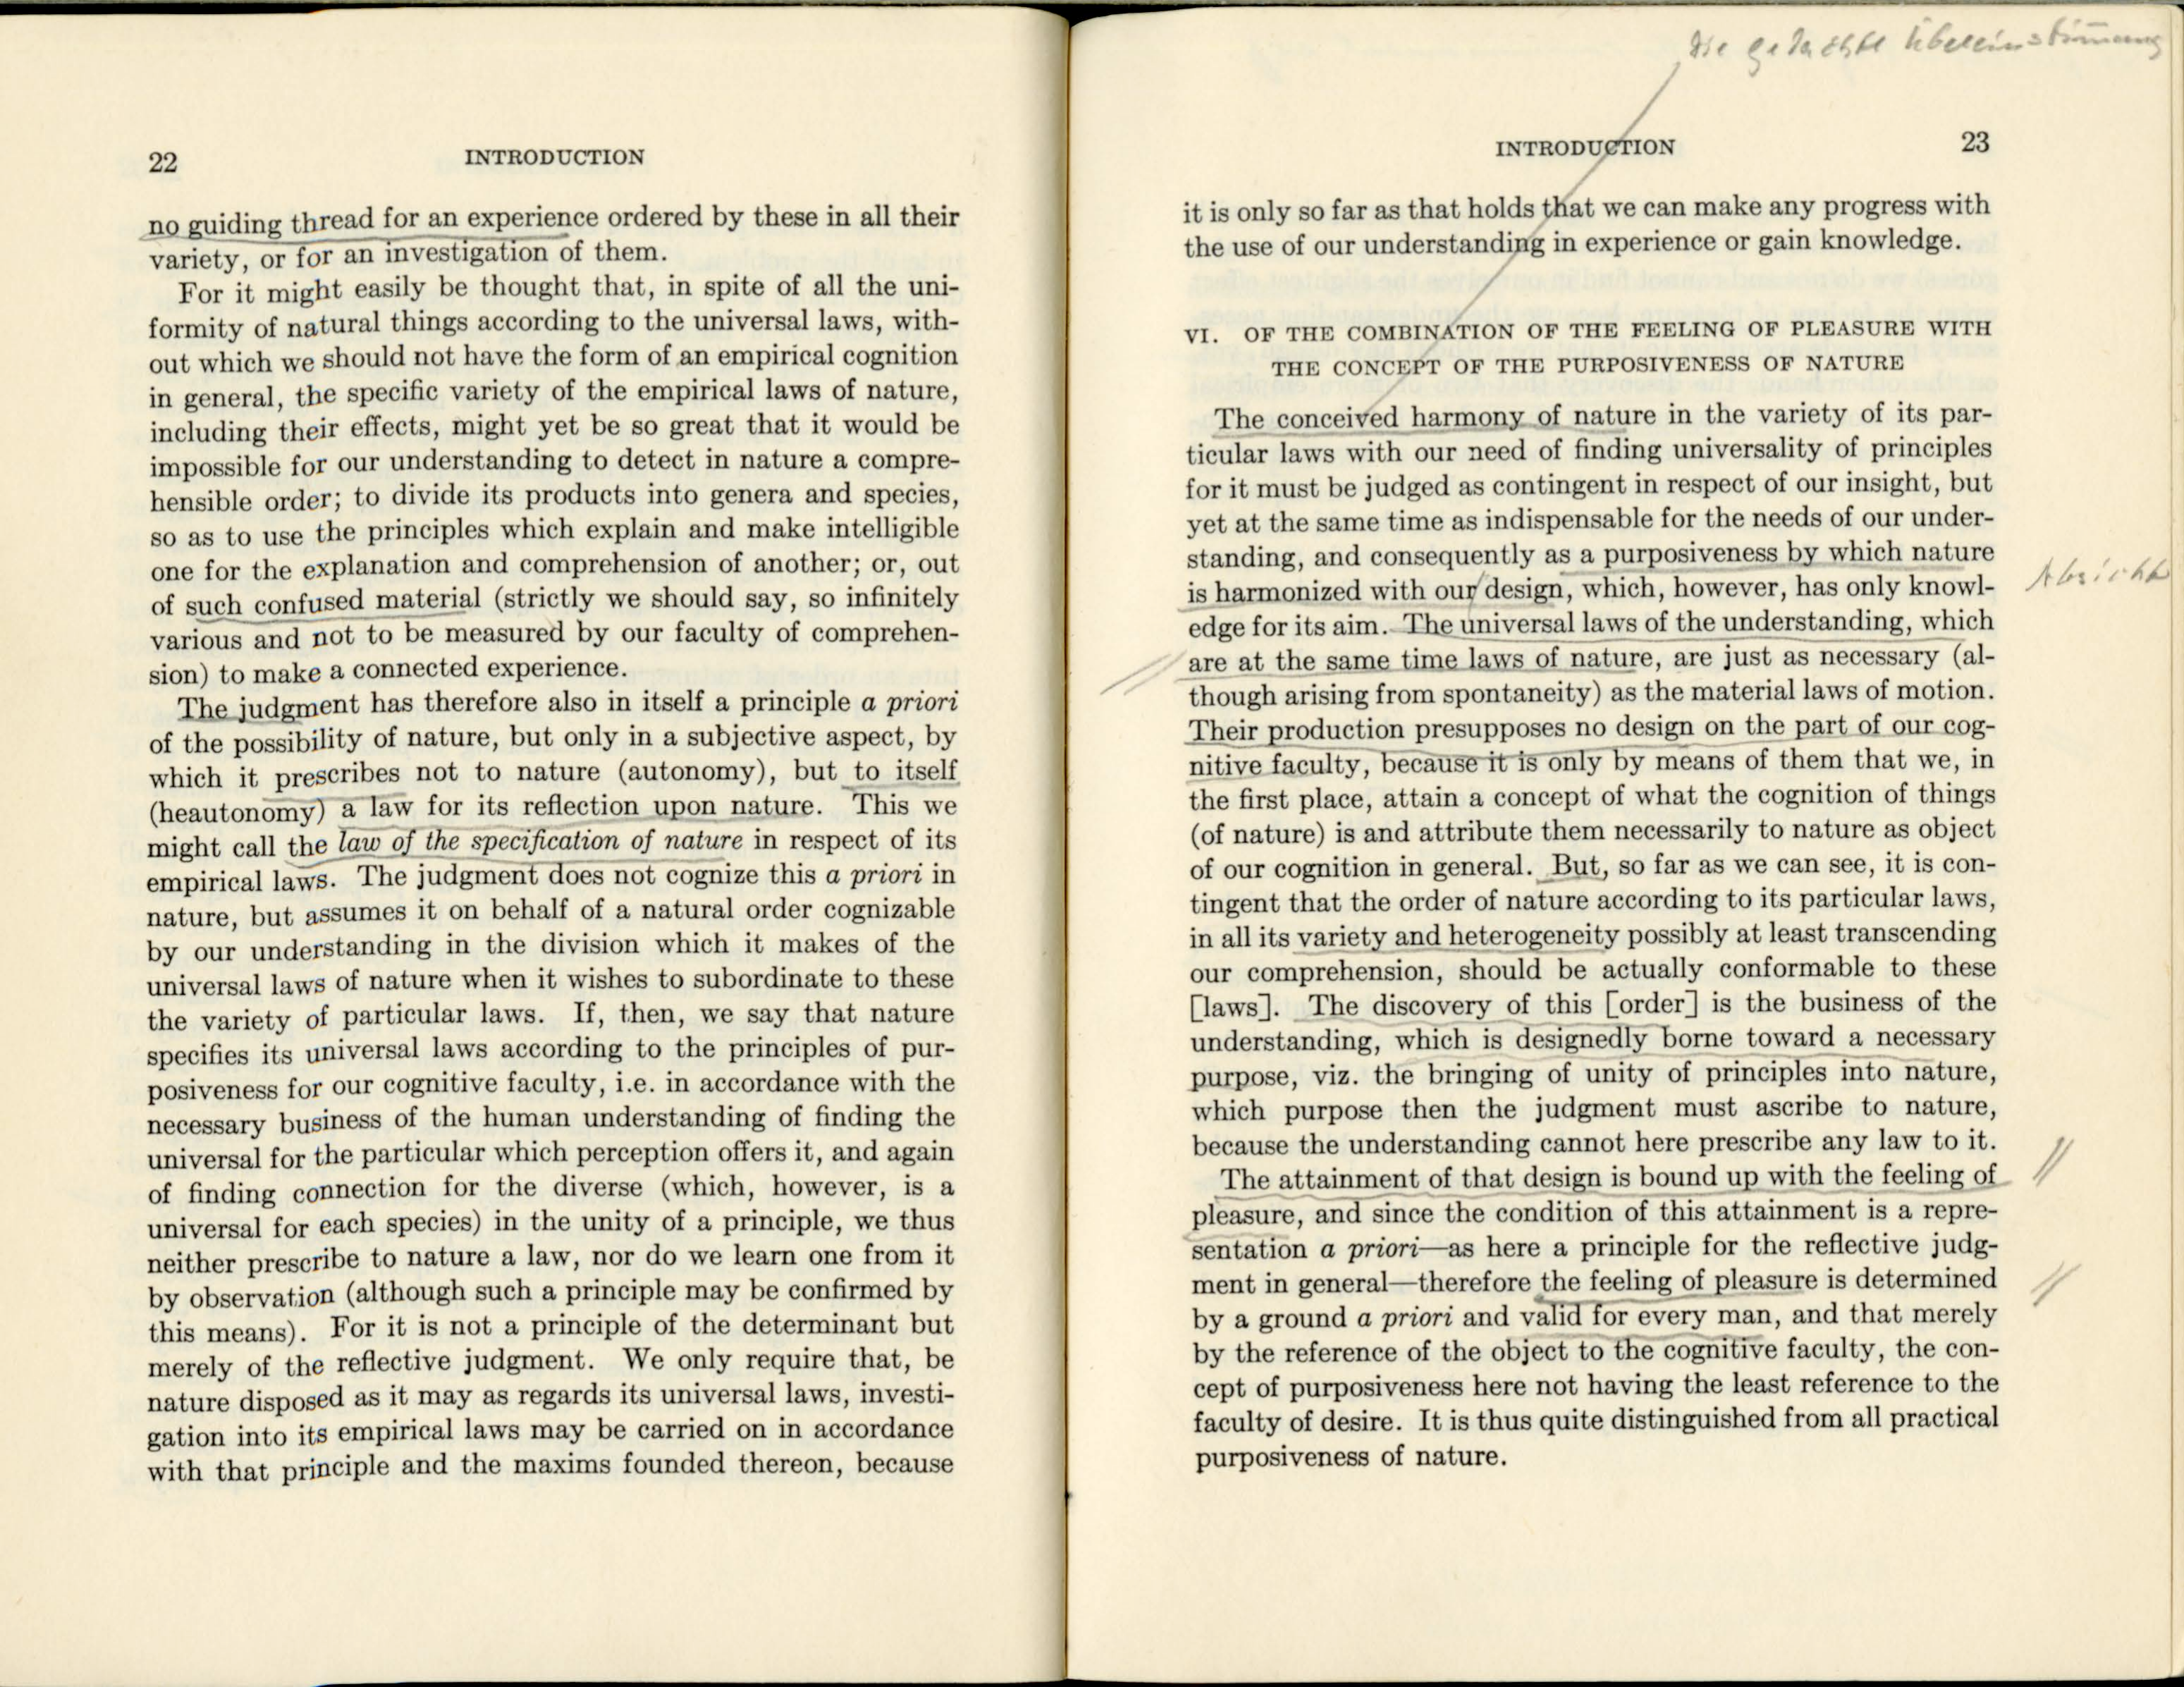 22 INTRODUCTION
no guiding thread for an experience ordered by these in all their
variety, or for an investigation of them.
For it might easily be thought that, in spite of all the uni-
formity of natural things according to the universal laws, with-
out which we should not have the form of an empirical cognition
in general, the specific variety of the empirical laws of nature,
including their effects, might yet be so great that it would be
impossible for our understanding to detect in nature a compre-
hensible order; to divide its products into genera and species,
so as to use the principles which explain and make intelligible
one for the explanation and comprehension of another; or, out
of such confused material (strictly we should say, so infinitely
various and not to be measured by our faculty of comprehen-
sion) to make a connected experience.
The judgment has therefore also in itself a principle a priori
of the possibility of nature, but only in a subjective aspect, by
which it prescribes not to nature (autonomy), but to itself
(heautonomy) a law for its reflection upon nature. This we
might call the law of the specification of nature in respect of its
empirical laws. The judgment does not cognize this a priori in
nature, but assumes it on behalf of a natural order cognizable
by our understanding in the division which it makes of the
universal laws of nature when it wishes to subordinate to these
the variety of particular laws. If, then, we say that nature
specifies its universal laws according to the principles of pur-
posiveness for our cognitive faculty, i.e. in accordance with the
necessary business of the human understanding of finding the
universal for the particular which perception offers it, and again
of finding connection for the diverse (which, however, is a
universal for each species) in the unity of a principle, we thus
neither prescribe to nature a law, nor do we learn one from it
by observation (although such a principle may be confirmed by
this means). For it is not a principle of the determinant but
merely of the reflective judgment. We only require that, be
nature disposed as it may as regards its universal laws, investi-
gation into its empirical laws may be carried on in accordance
with that principle and the maxims founded thereon, because
Die gedachte Übereinstimmung
INTRODUCTION 23
it is only so far as that holds that we can make any progress with
the use of our understanding in experience or gain knowledge.
VI. OF THE COMBINATION OF THE FEELING OF PLEASURE WITH
THE CONCEPT OF THE PURPOSIVENESS OF NATURE
The conceived harmony of nature in the variety of its par-
ticular laws with our need of finding universality of principles
for it must be judged as contingent in respect of our insight, but
yet at the same time as indispensable for the needs of our under-
standing, and consequently as a purposiveness by which nature
is harmonized with our design, which, however, has only knowl-
Absicht
edge for its aim. The universal laws of the understanding, which
are at the same time laws of nature, are just as necessary (al-
though arising from spontaneity) as the material laws of motion.
Their production presupposes no design on the part of our cog-
nitive faculty, because it is only by means of them that we, in
the first place, attain a concept of what the cognition of things
(of nature) is and attribute them necessarily to nature as object
of our cognition in general. But, so far as we can see, it is con-
tingent that the order of nature according to its particular laws,
in all its variety and heterogeneity possibly at least transcending
our comprehension, should be actually conformable to these
[laws]. The discovery of this [order] is the business of the
understanding, which is designedly borne toward a necessary
purpose, viz. the bringing of unity of principles into nature,
which purpose then the judgment must ascribe to nature,
because the understanding cannot here prescribe any law to it.
The attainment of that design is bound up with the feeling of
pleasure, and since the condition of this attainment is a repre-
sentation a priori—as here a principle for the reflective judg-
ment in general—therefore the feeling of pleasure is determined
by a ground a priori and valid for every man, and that merely
by the reference of the object to the cognitive faculty, the con-
cept of purposiveness here not having the least reference to the
faculty of desire. It is thus quite distinguished from all practical
purposiveness of nature.